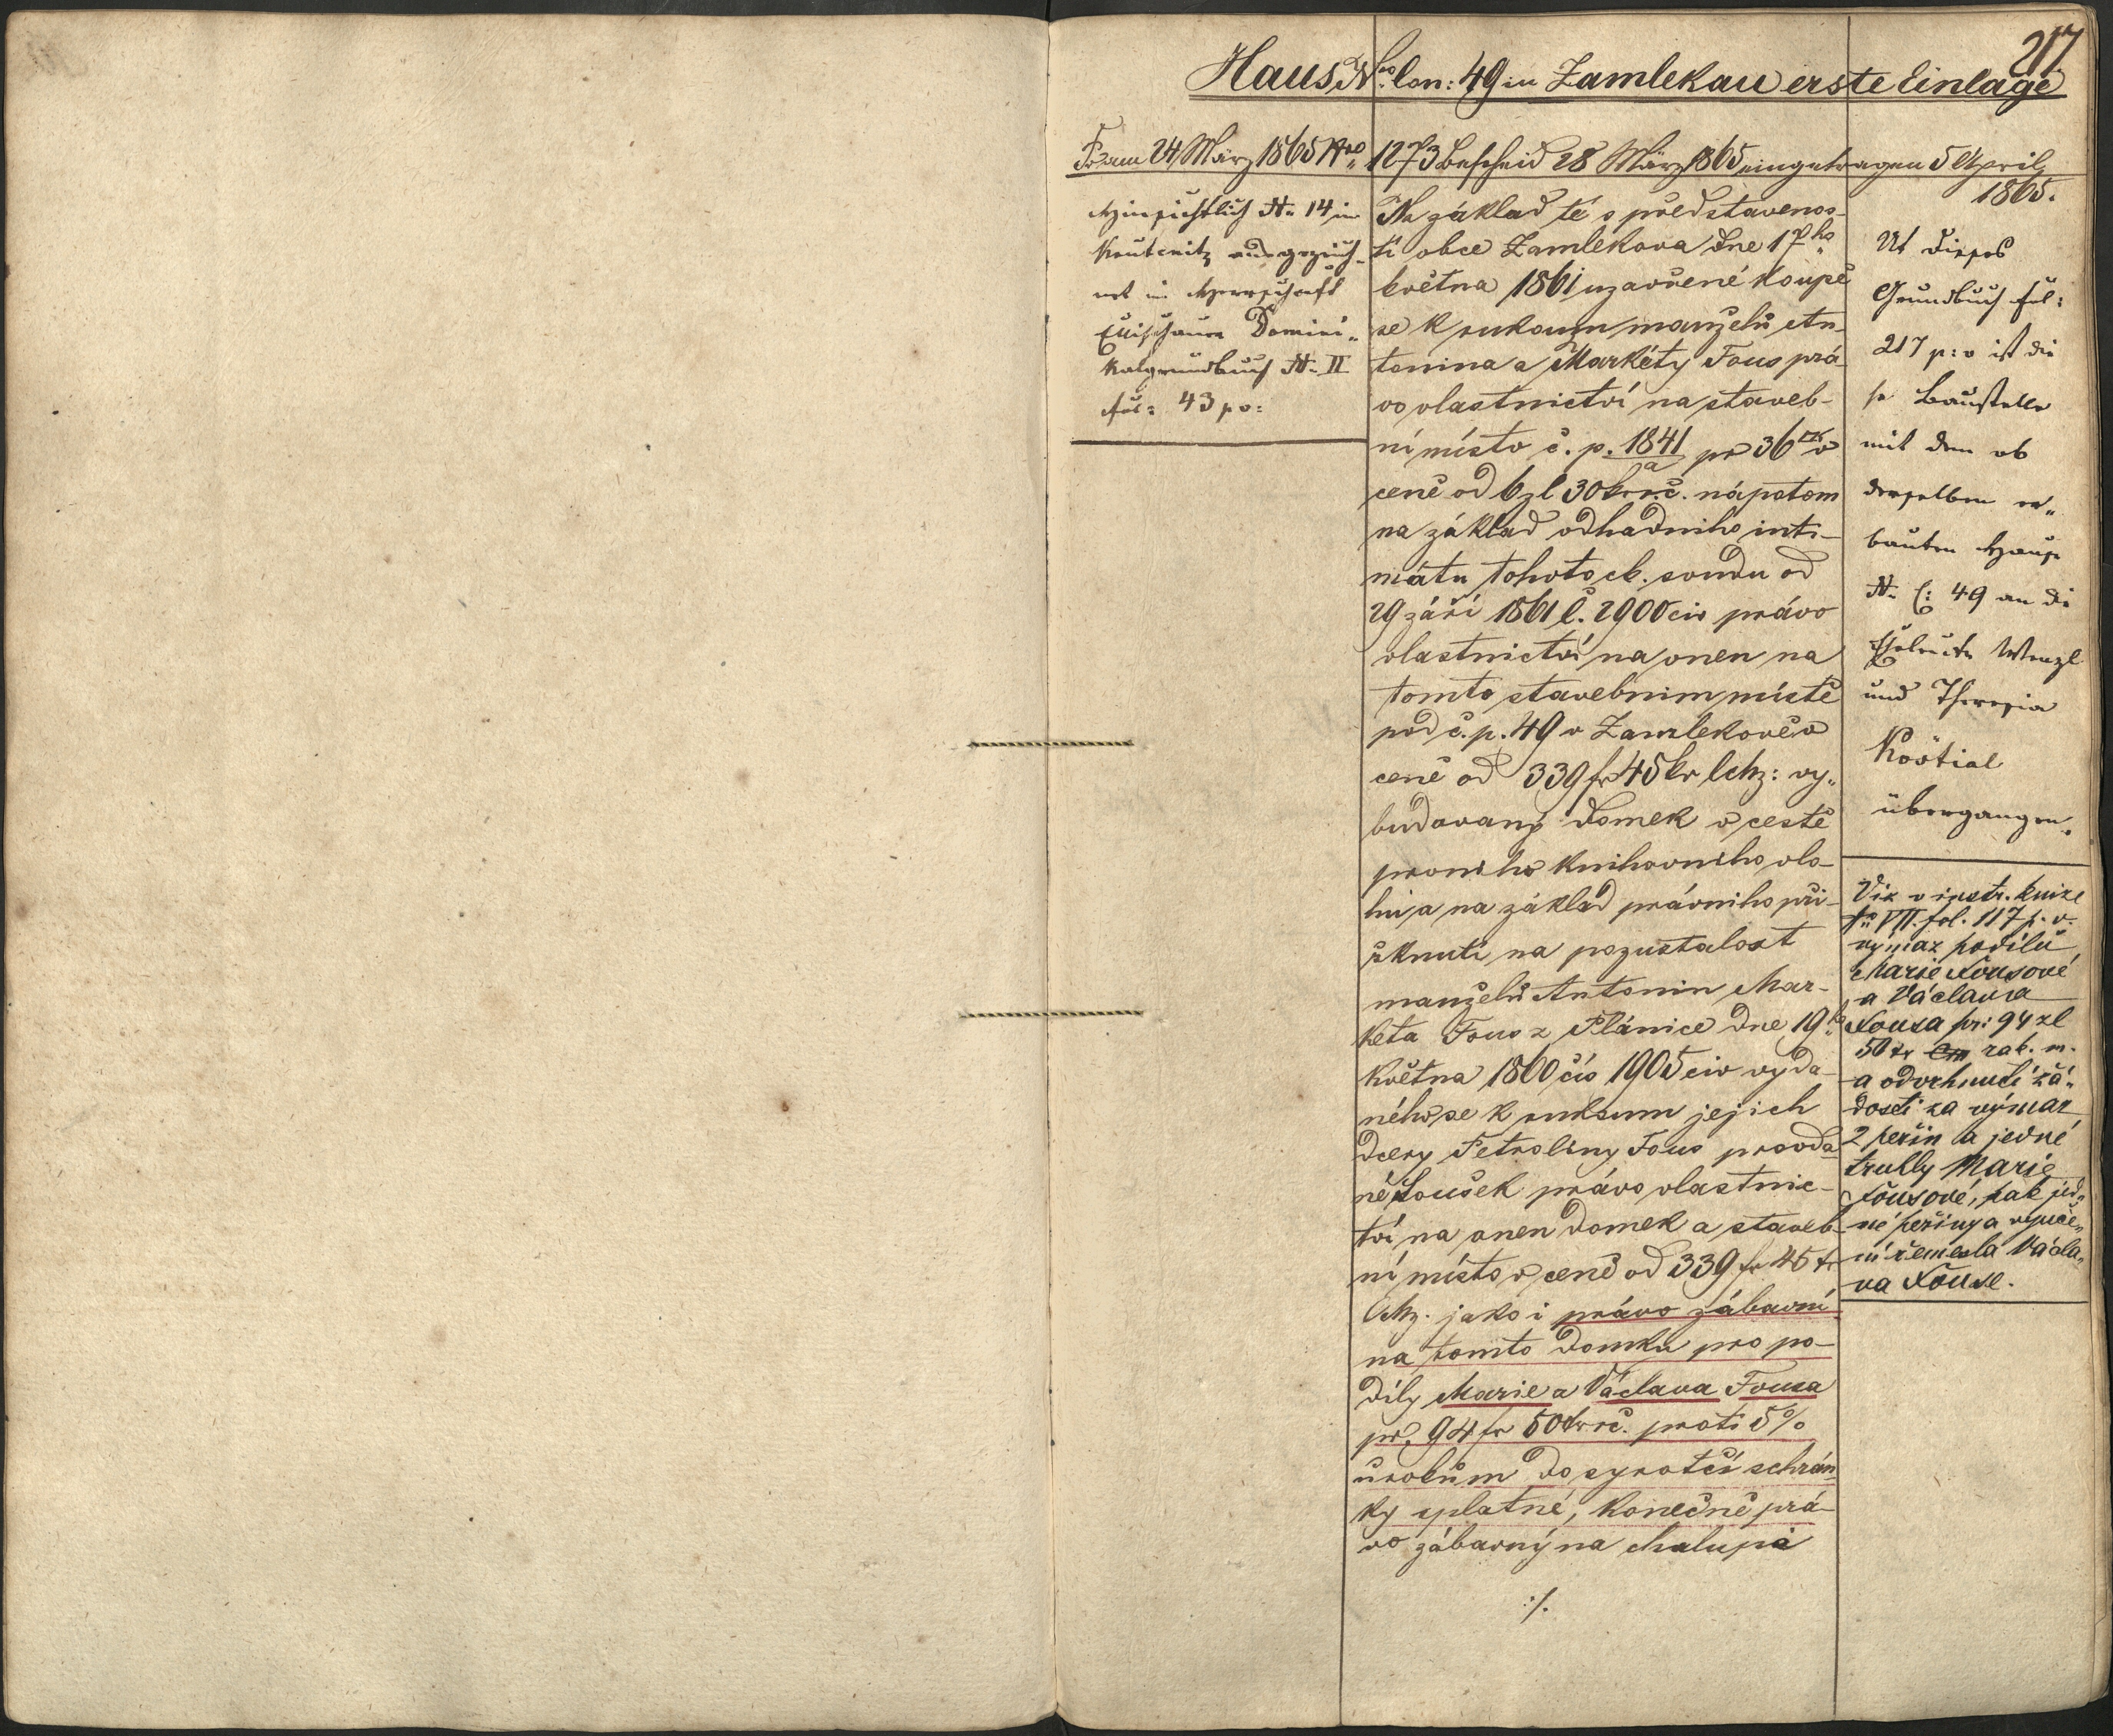 217
Haus Nro Con: 49 in Zamlekau erste Einlage
Pr. am 24 März 1865 Nro 1273 Bescheid 28 März 1865 eingetragen 5 April
1865.
Hinsichtlich N. 14 in
ausgezeich-
net im Herrschaft
Domini-
kalgrundbuch N. II
fol: 43 po:
Na základ té s představenos-
tí obce Zamlekova dne 17ho
května 1861 uzavřené koupě
se k rukoum manželů An-
tonina a Markéty Fous prá-
vo vlastnictví na staveb-
ní místo č. p. 1841/a pr 36 v
ceně od 6 zl 30 kr r.č. nápotom
na základ odhadního inti-
mátu tohoto ck. soudu od
29 září 1861 č. 2900 civ právo
vlastnictví na onen na
tomto stavebním místě
pod č. p. 49 v Zamlekově v
ceně od 339 fr 45 kr CMz: vy-
budovaný domek v cestě
prvního knihovního vlo-
hu, a na základ právního při-
řknutí na pozustalost
manželů Antonin Mar-
keta Fous z Plánice dne 19ho
května 1860 čís 1905 civ vyda-
ného se k rukoum jejich
dcery Petroliny Fous provda-
né Loušek právo vlastnic-
tví na onen domek a staveb-
ní místo v ceně od 339 fr 45 kr
CMz. jako i právo zábavní
na tomto domku pro po-
díly Marie a Václava Fousa
pr. 94 fr 50 kr r.č. proti 5%
úrokům do syrotčí schrán-
ky splatné, konečně prá-
vo zábavný na chalupě
:/.
Ut dieses
Grundbuch fol:
217 p: v ist die
se Baustelle
mit dem ob
derselben er-
bauten Hause
N. C: 49 an die
Eheleute Wenzl
und Theresia
Koötial
übergangen.
Viz v instr. knize
No VII. fol. 117 p. v.
výmaz podílů
Marie Fousové
a Václava
Fousa pr: 94 zl
50 kr Cm rak. m.
a odvrhnutí žá-
dosti za výmaz
2 peřin a jedné
truhly Marie
Fousové, pak jed-
né peřiny a vyuče-
ní řemesla Václa-
va Fouse.